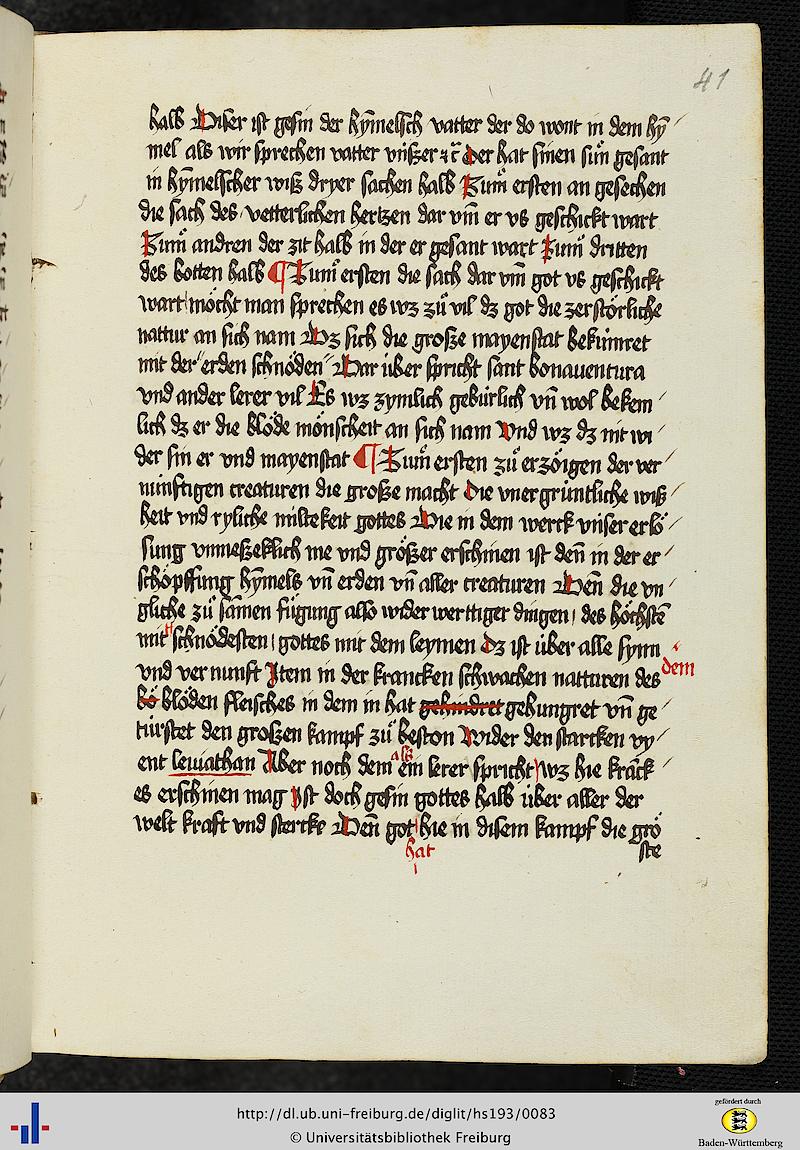 41
halb Diser ist gesin der hÿmelsch vatter der do wont in dem hÿ
mel als wir sprechen vatter vnßzer ⁊c̄ Der hat sinen sůn gesant
in hÿmelscher wiß dryer sachen halb Zum̄ ersten an gesechen
die sach des vetterlichen hertzen dar vm̄ er vs geschickt wart
Zum̄ andren der zit halb in der er gesant wart Zum̄ dritten
des botten halb ¶ Zum̄ ersten die sach dar vm̄ got vs geschickt
wart möcht man sprechen es wz zů vil dz got die zerstörliche
nattur an sich nam Dz sich die große mayenstat bekümret
mit der erden schnöden Dar über spricht sant bonauentura
vnd ander lerer vil Es wz zymlich gebürlich vn̄ wol bekem
lich dz er die blöde mönscheit an sich nam Vnd wz dz nit wi
der sin er vnd mayenstat ¶ Zum̄ ersten zů erzöigen der ver
nünftigen creaturen die große macht Die vnergrüntliche wiß
heit vnd ryliche miltekeit gottes Die in dem werck vnßer erlö
sung vnmeßeklich me vnd größer erschinen ist den̄ in der er
schöpffung hÿmels vn̄ erden vn̄ aller creaturen Den̄ die vn
gliche zů samen fügung also wider werttiger dingen des höchstē
mit schnödesten gottes mit dem leymen Dz ist über alle synn
dem
vnd vernunft Item in der krancken schwachen natturen des
bö blöden fleisches in dem in hat gehindret gehungret vn̄ ge
türstet den großen kampf zů beston Wider den starcken vy
ent leuiathan Aber noch dem als ein lerer spricht wz hie kranck
es erschinen mag Ist doch gesin gottes halb über aller der
welt kraft vnd stercke Den̄ got hie in disem kampf die grö
hat
ste
http://dl.ub.uni-freiburg.de/diglit/hs193/0083
© Universitätsbibliothek Freiburg
gefördert durch
Baden-Württemberg